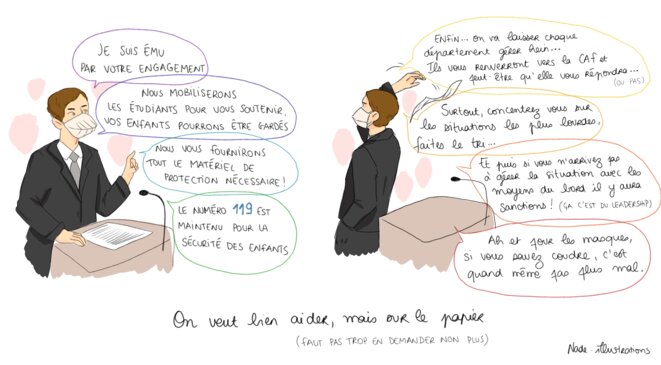 JE SUIS ÉMU
PAR VOTRE ENGAGEMENT
NOUS MOBILISERONS
LES ÉTUDIANTS POUR VOUS SOUTENIR.
VOS ENFANTS POURRONS ÊTRE GARDÉS
NOUS VOUS FOURNIRONS
TOUT LE MATÉRIEL DE
PROTECTION NÉCESSAIRE !
LE NUMÉRO 119 EST
MAINTENU POUR LA
SÉCURITÉ DES ENFANTS
ENFIN... on va laisser chaque
département gérer hein...
Ils vous renverront vers la CAF et
peut-être qu'elle vous répondra...
(OU PAS)
Surtout, concentrez vous sur
les situations les plus lourdes,
faites le tri...
Et puis si vous n'arrivez pas
à gérer la situation avec les
moyens du bord il y aura
sanctions ! (ÇA C'EST DU LEADERSHIP)
Ah et pour les masques,
si vous savez coudre, c'est
quand même pas plus mal.
On veut bien aider, mais sur le papier
(FAUT PAS TROP EN DEMANDER NON PLUS)
Nade-illustrations